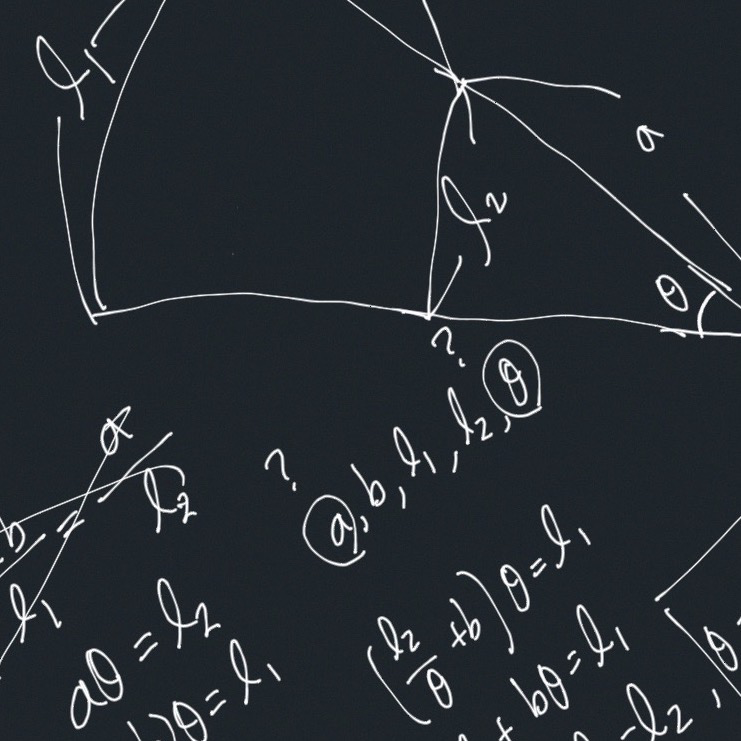 l₁
a
l₂
θ
?
? a, b, l₁, l₂, θ
b/l₁ = a/l₂
aθ = l₂
b)θ = l₁
(l₂/θ + b)θ = l₁
+ bθ = l₁
- l₂,
θ